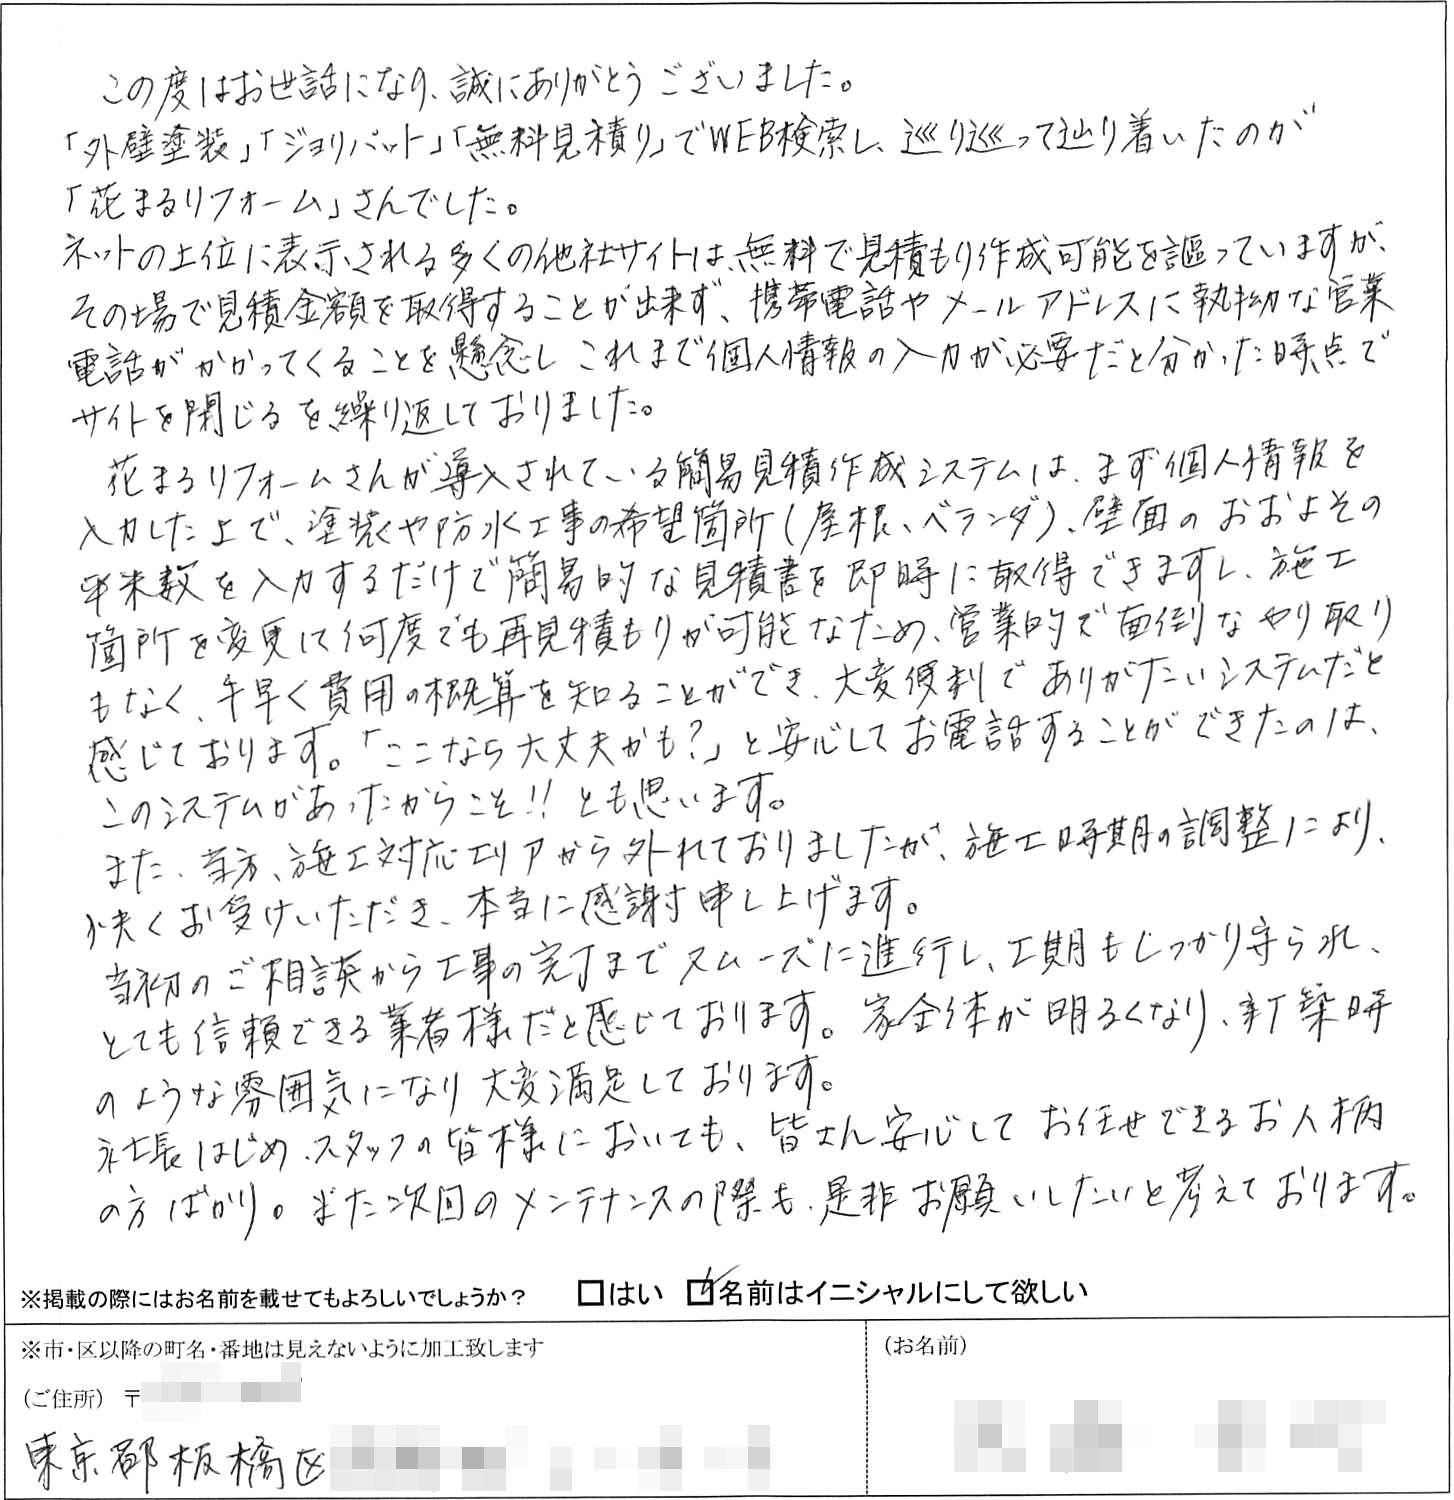 この度はお世話になり、誠にありがとうございました。
「外壁塗装」「ジョリパット」「無料見積り」でWEB検索し、巡り巡って辿り着いたのが
「花まるリフォーム」さんでした。
ネットの上位に表示される多くの他社サイトは、無料で見積もり作成可能を謳っていますが、
その場で見積金額を取得することが出来ず、携帯電話やメールアドレスに執拗な営業
電話がかかってくることを懸念し これまで個人情報の入力が必要だと分かった時点で
サイトを閉じるを繰り返しておりました。
花まるリフォームさんが導入されている簡易見積作成システムは、まず個人情報を
入力した上で、塗装や防水工事の希望箇所(屋根、ベランダ)、壁面のおおよその
平米数を入力するだけで簡易的な見積書を即時に取得できますし、施工
箇所を変更して何度でも再見積もりが可能なため、営業的で面倒なやり取り
もなく、手早く費用の概算を知ることができ、大変便利でありがたいシステムだと
感じております。「ここなら大丈夫かも?」と安心してお電話することができたのは、
このシステムがあったからこそ!!とも思います。
また、当方、施工対応エリアから外れておりましたが、施工時期の調整により、
快くお受けいただき、本当に感謝申し上げます。
当初のご相談から工事の完了までスムーズに進行し、工期もしっかり守られ、
とても信頼できる業者様だと感じております。家全体が明るくなり、新築時
のような雰囲気になり大変満足しております。
社長はじめ、スタッフの皆様においても、皆さん安心してお任せできるお人柄
の方ばかり。また次回のメンテナンスの際も、是非お願いしたいと考えております。
※掲載の際にはお名前を載せてもよろしいでしょうか? □はい ☑名前はイニシャルにして欲しい
※市・区以降の町名・番地は見えないように加工致します
(お名前)
(ご住所) 〒
東京都板橋区